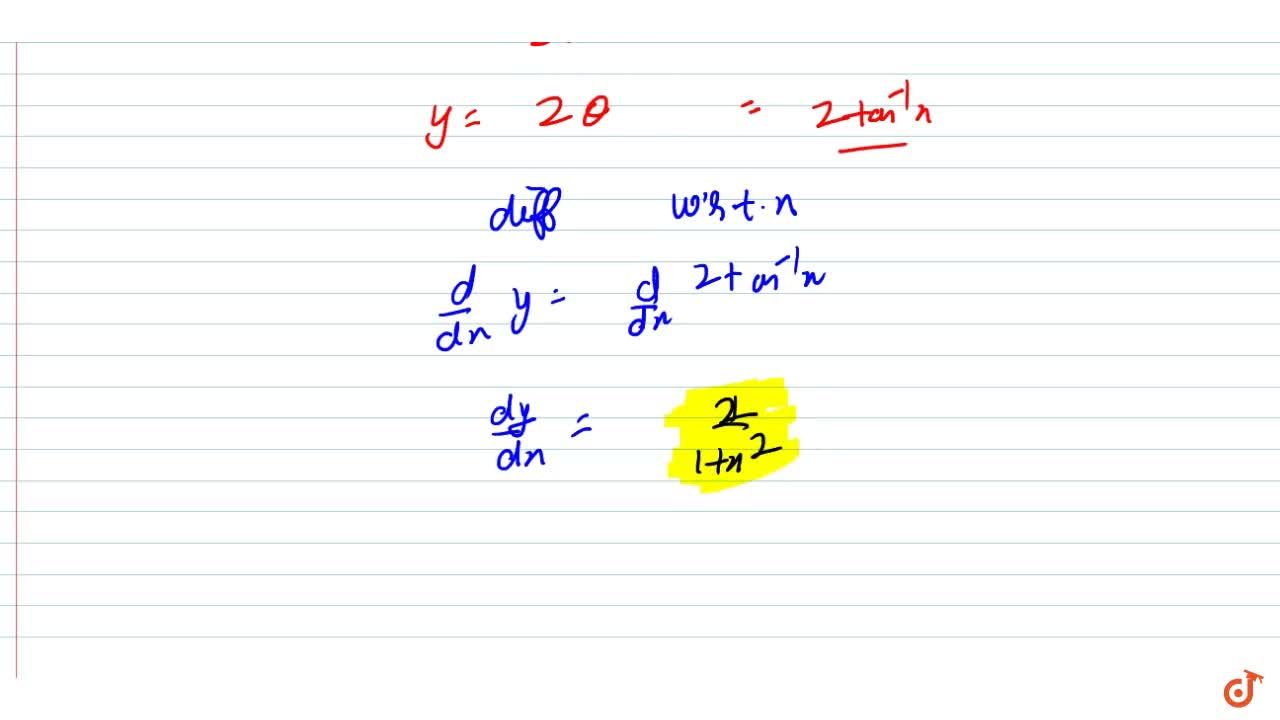 y = 2θ = 2 tan⁻¹x
diff w.r.t. x
d/dx y = d/dx 2 tan⁻¹x
dy/dx = 2/1+x²